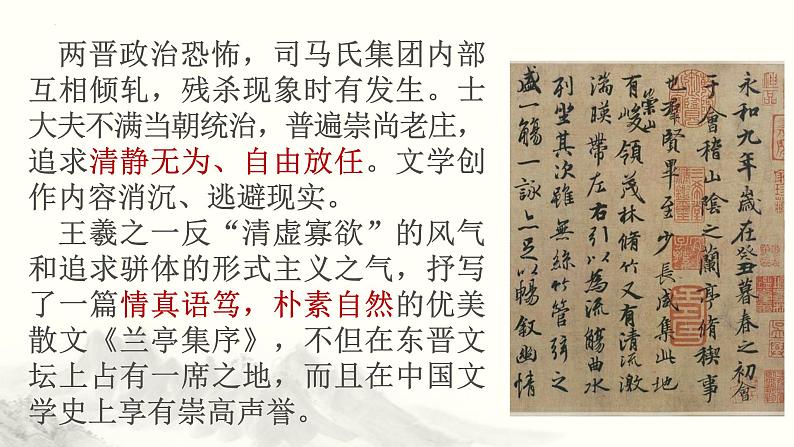 两晋政治恐怖，司马氏集团内部
互相倾轧，残杀现象时有发生。士
大夫不满当朝统治，普遍崇尚老庄，
追求清静无为、自由放任。文学创
作内容消沉、逃避现实。
王羲之一反“清虚寡欲”的风气
和追求骈体的形式主义之气，抒写
了一篇情真语笃，朴素自然的优美
散文《兰亭集序》，不但在东晋文
坛上占有一席之地，而且在中国文
学史上享有崇高声誉。
永和九年歲在癸丑暮春之初會
于會稽山陰之蘭亭脩稧事
也羣賢畢至少長咸集此地
有崇山峻領茂林脩竹又有清流激
湍暎帶左右引以為流觴曲水
列坐其次雖無絲竹管弦之
盛一觴一詠亦足以暢敘幽情